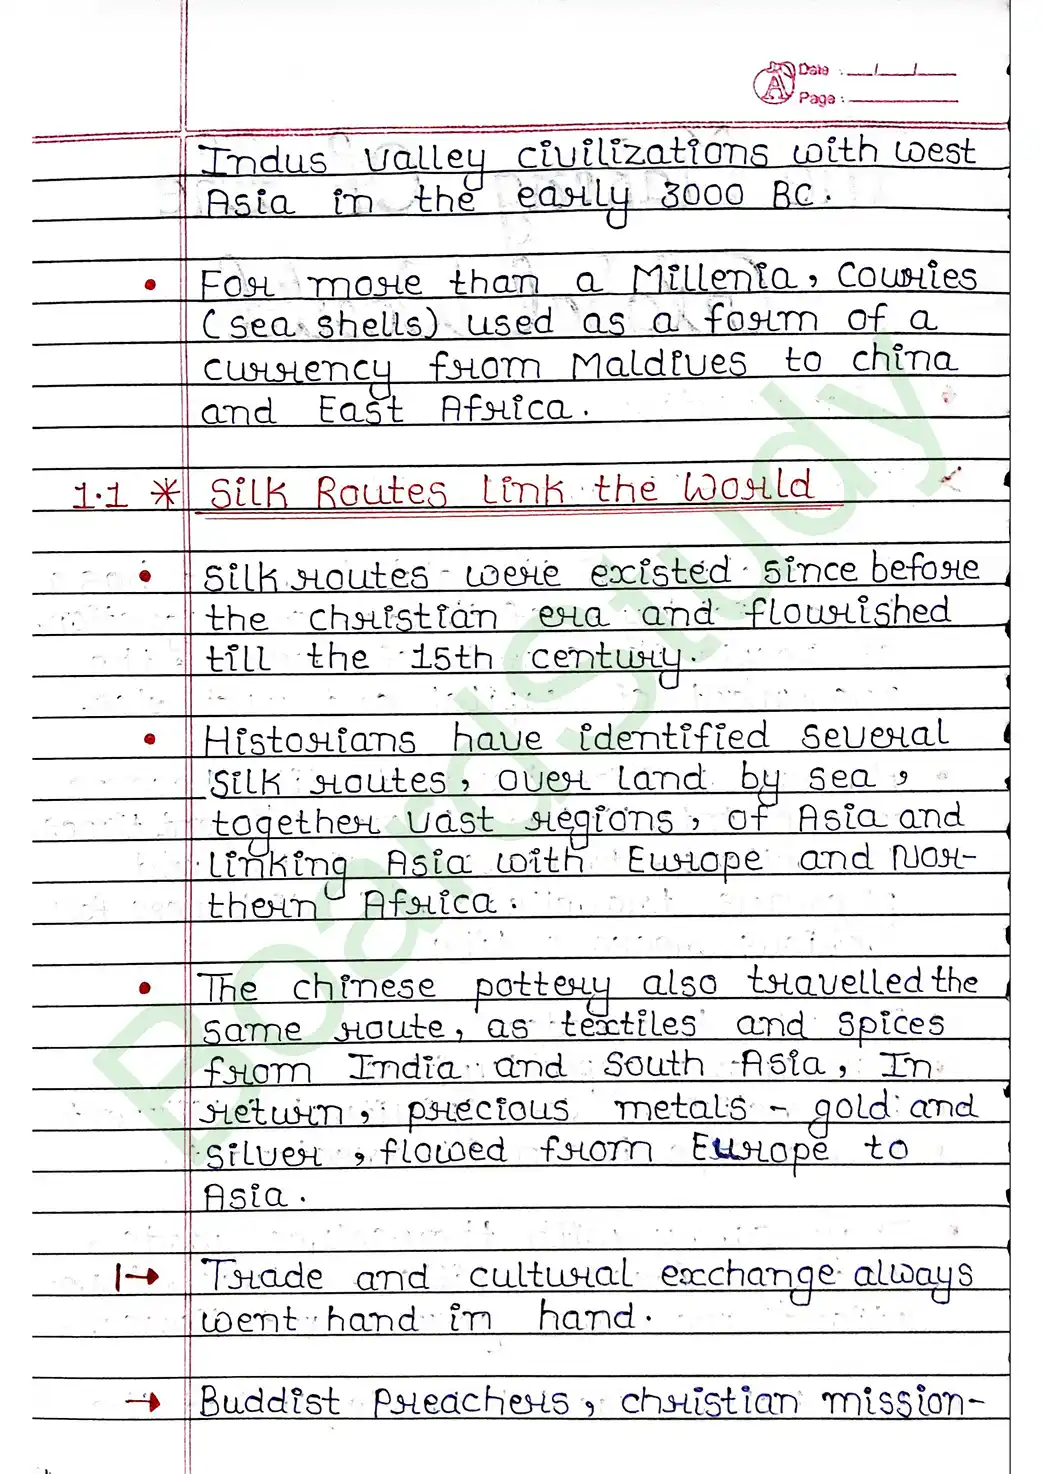 Date : __/__/__
Page :
Indus Valley civilizations with west
Asia in the early 3000 BC.
• For more than a Millenia, Couries
(sea shells) used as a form of a
currency from Maldives to china
and East Africa.
1.1 * Silk Routes Link the World
• Silk routes were existed since before
the christian era and flourished
till the 15th century.
• Historians have identified several
silk routes, over land by sea,
together vast regions, of Asia and
linking Asia with Europe and Nor-
thern Africa.
• The chinese pottery also travelled the
same route, as textiles and spices
from India and South Asia, In
return, precious metals - gold and
silver, flowed from Europe to
Asia.
1→ Trade and cultural exchange always
went hand in hand.
→ Buddist Preachers, christian mission-
BoardStudy